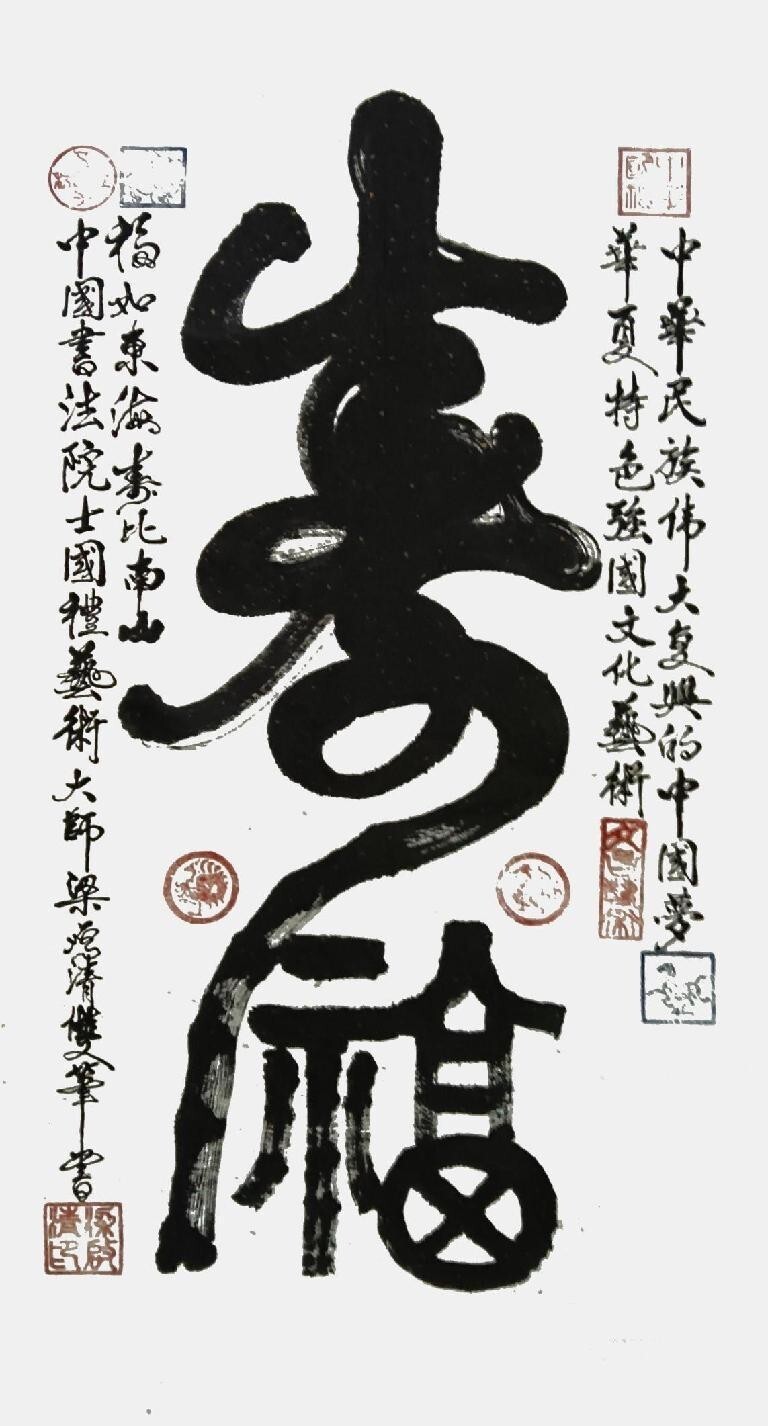 中華民族伟大复興的中國夢
華夏特色强國文化藝術
壽福
福如東海壽比南山
中國書法院士國禮藝術大師梁啟清雙筆書
梁啟清印